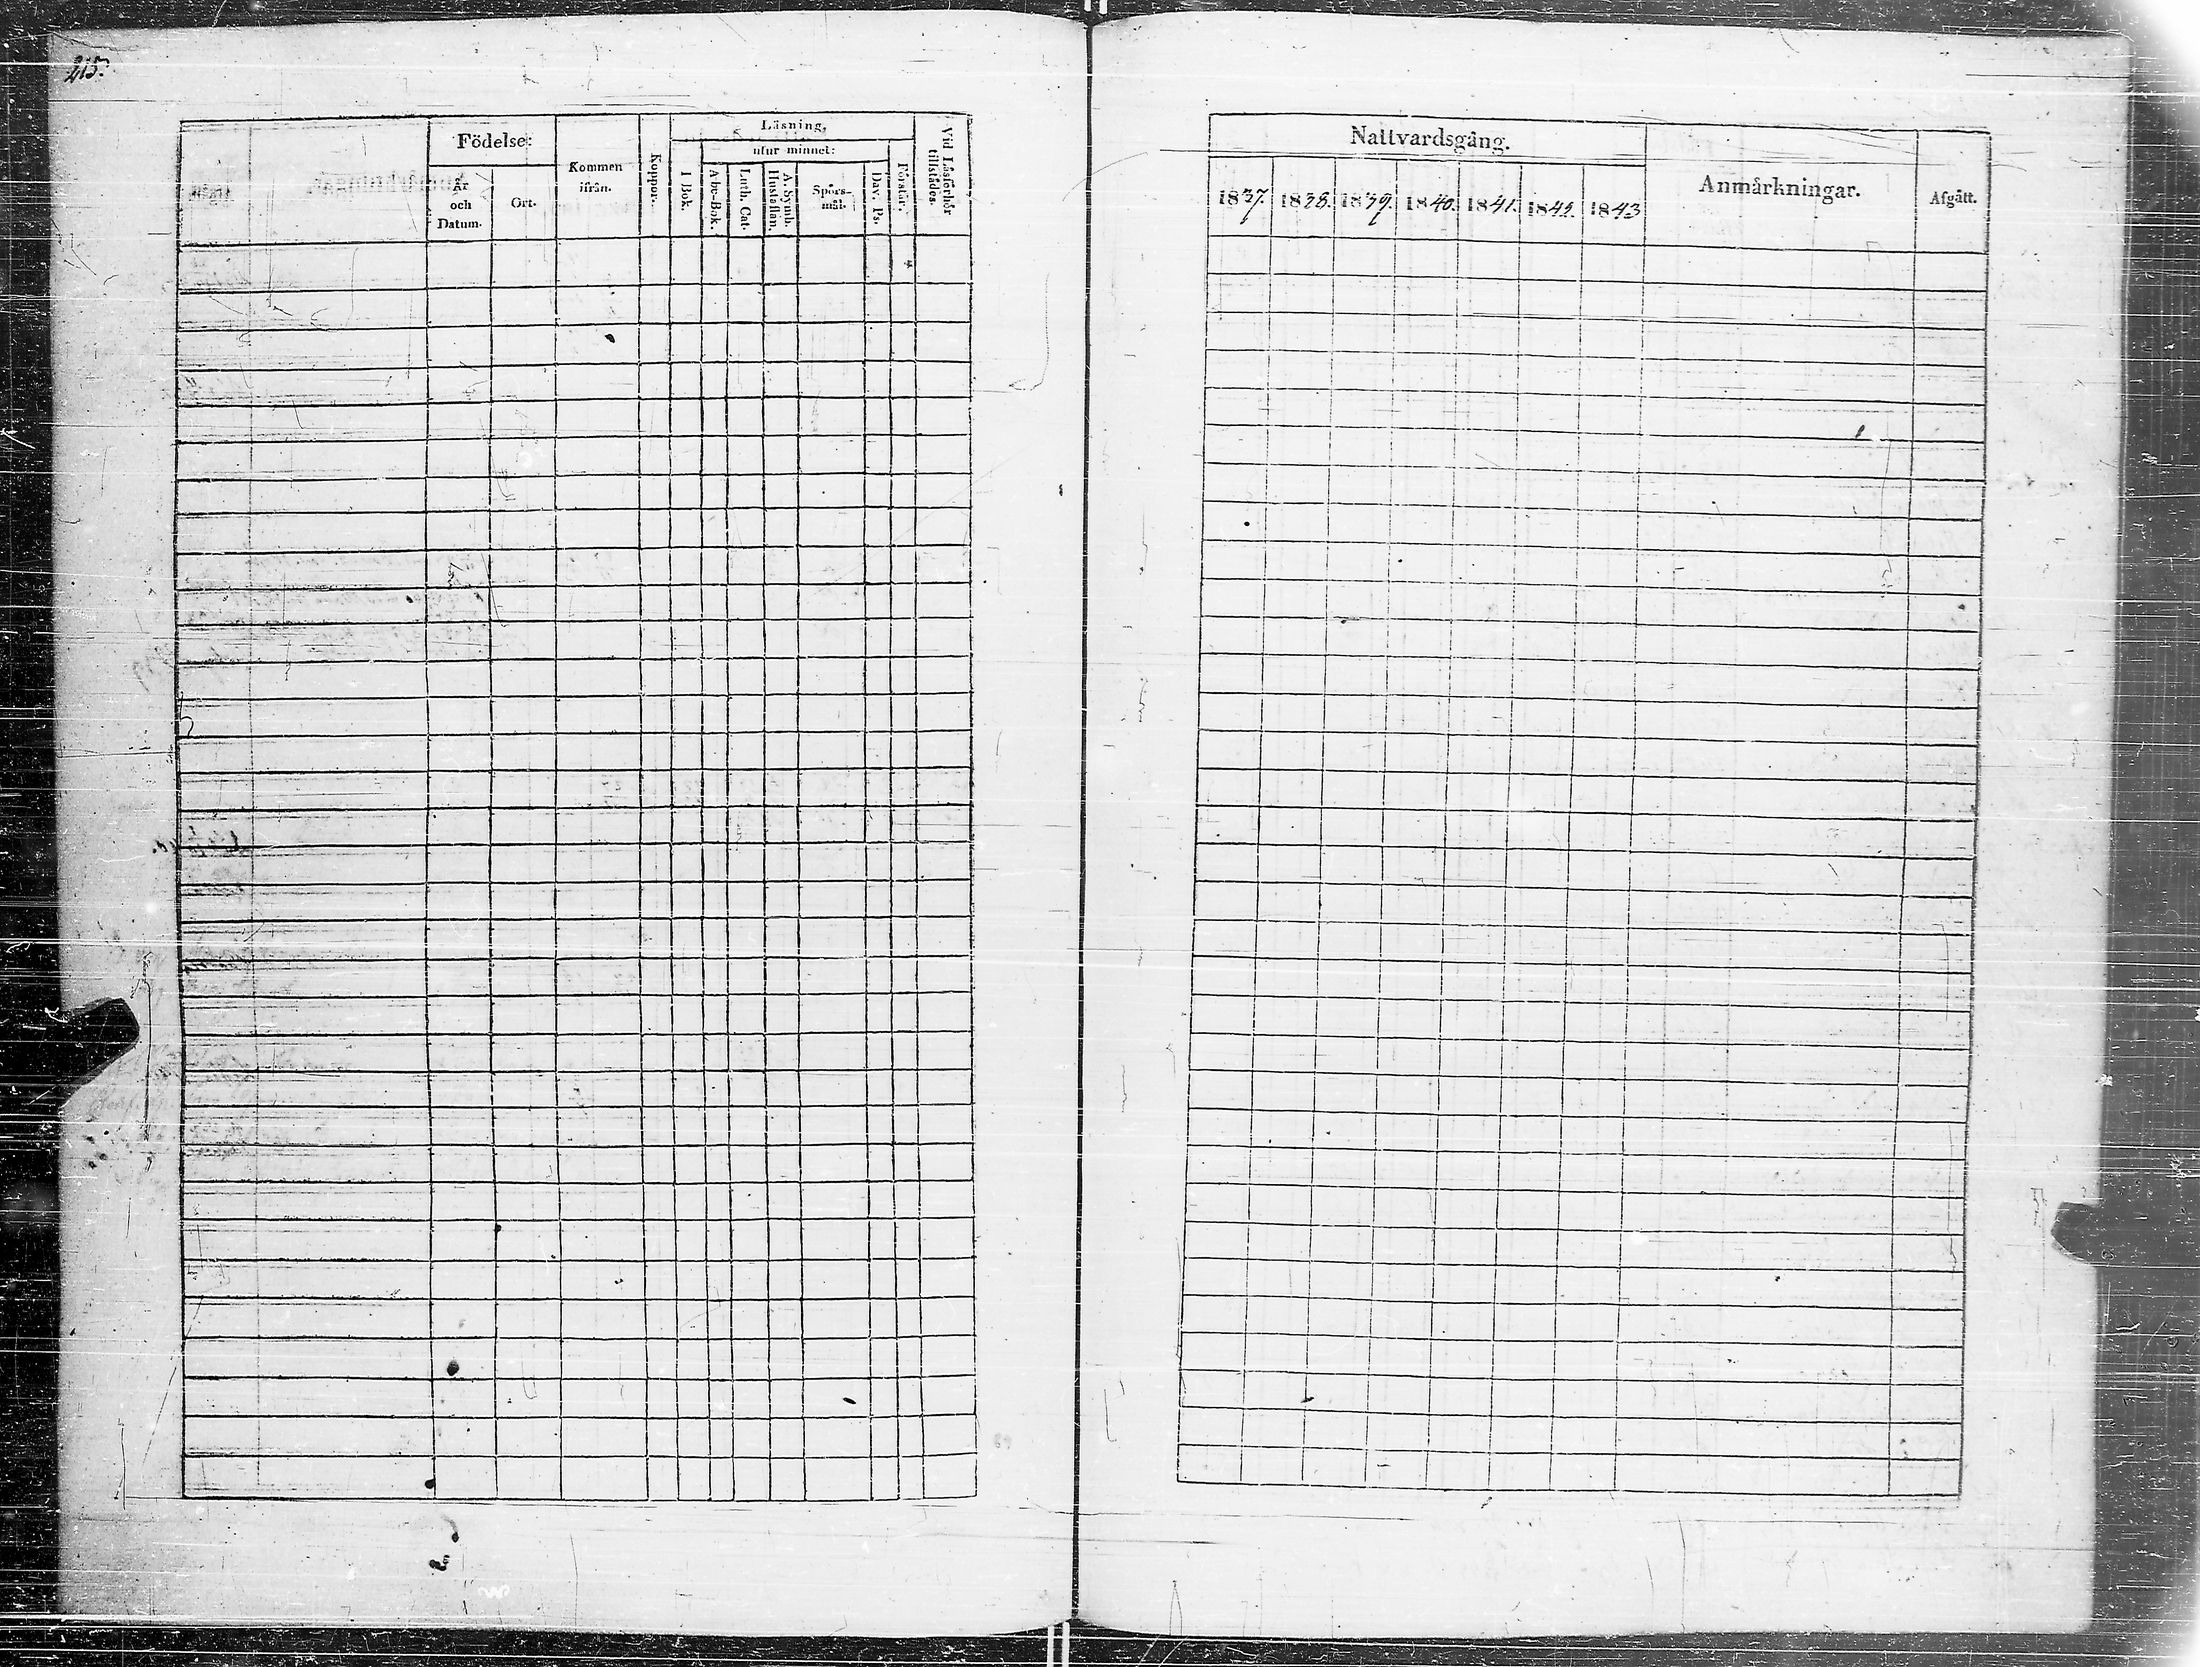 215.
Födelse:
År och Datum.
Ort.
Kommen ifrån.
Koppor.
Läsning,
I Bok.
utur minnet:
Abc-Bok.
Luth. Cat.
A. Symb. Hustaflan.
Spörs-mål.
Dav. Ps.
Förstår.
Vid Läsförhör tillstädes.
Nattvardsgång.
1837. 1838. 1839. 1840. 1841. 1842. 1843
Anmärkningar.
Afgått.